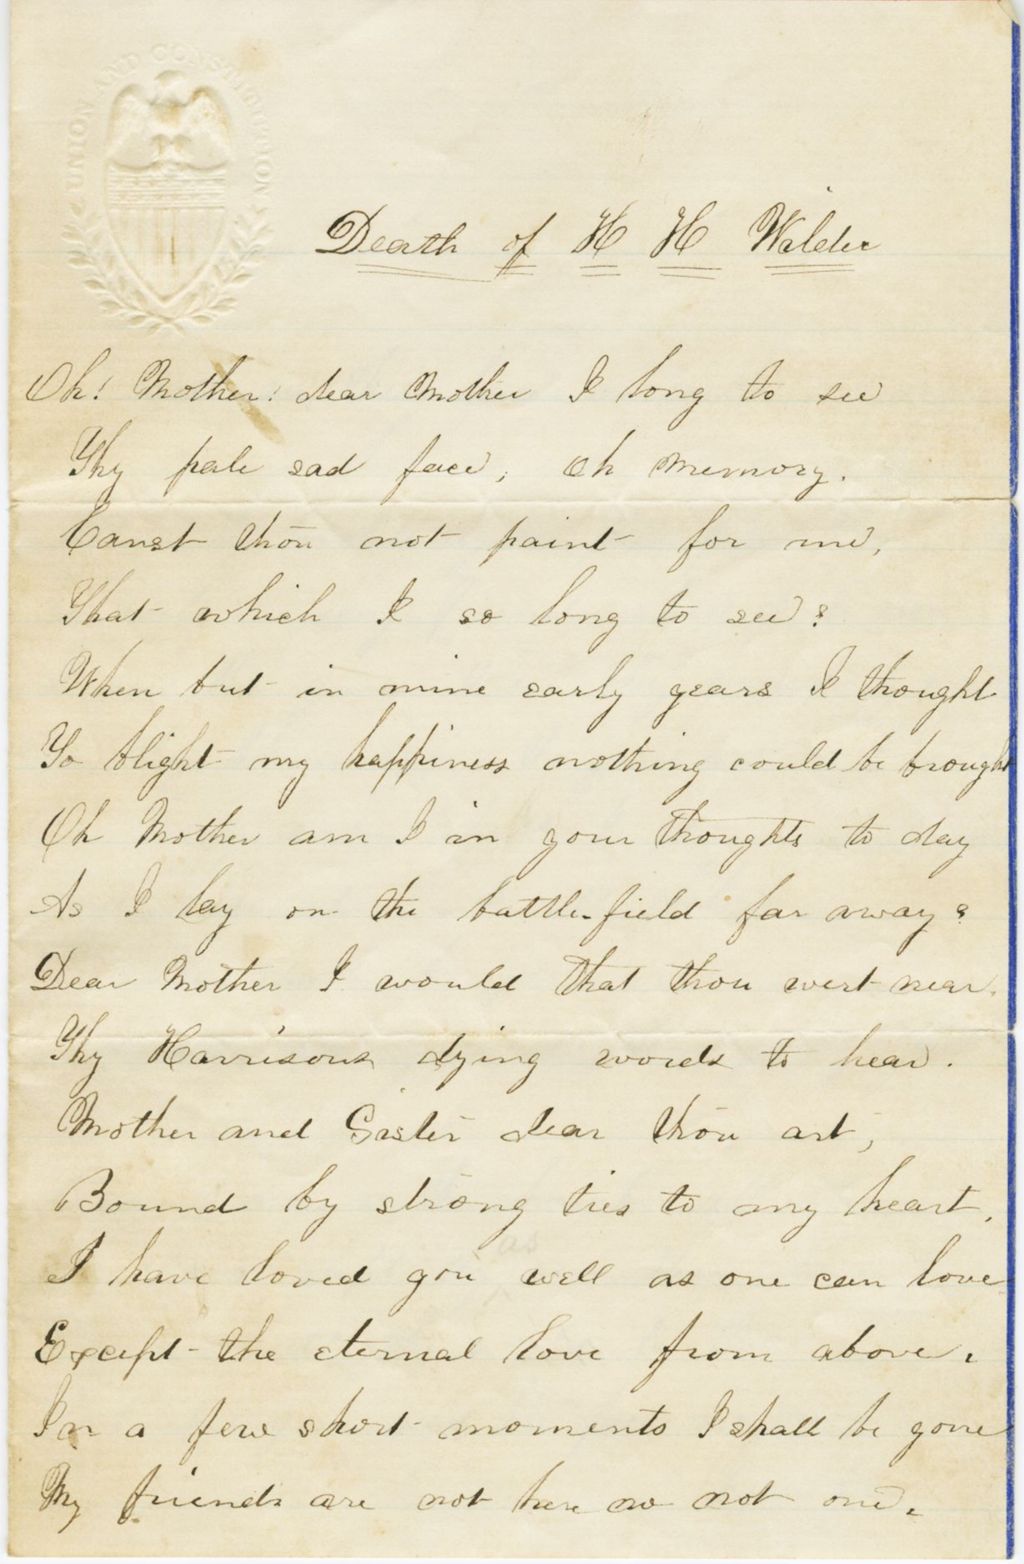 UNION AND CONSTITUTION
Death of H H Wilder
Oh! Mother! dear Mother I long to see
Thy pale sad face, oh memory.
Canst thou not paint for me,
That which I so long to see?
When but in mine early years I thought
To blight my happiness nothing could be brought
Oh Mother am I in your thoughts to day
As I lay on the battle-field far away?
Dear Mother I would that thou wert near.
Thy Harrisons dying words to hear.
Mother and Sister dear thou art,
Bound by strong ties to my heart.
I have loved you well as one can love
Except the eternal love from above.
In a few short moments I shall be gone
My friends are not here no not one.